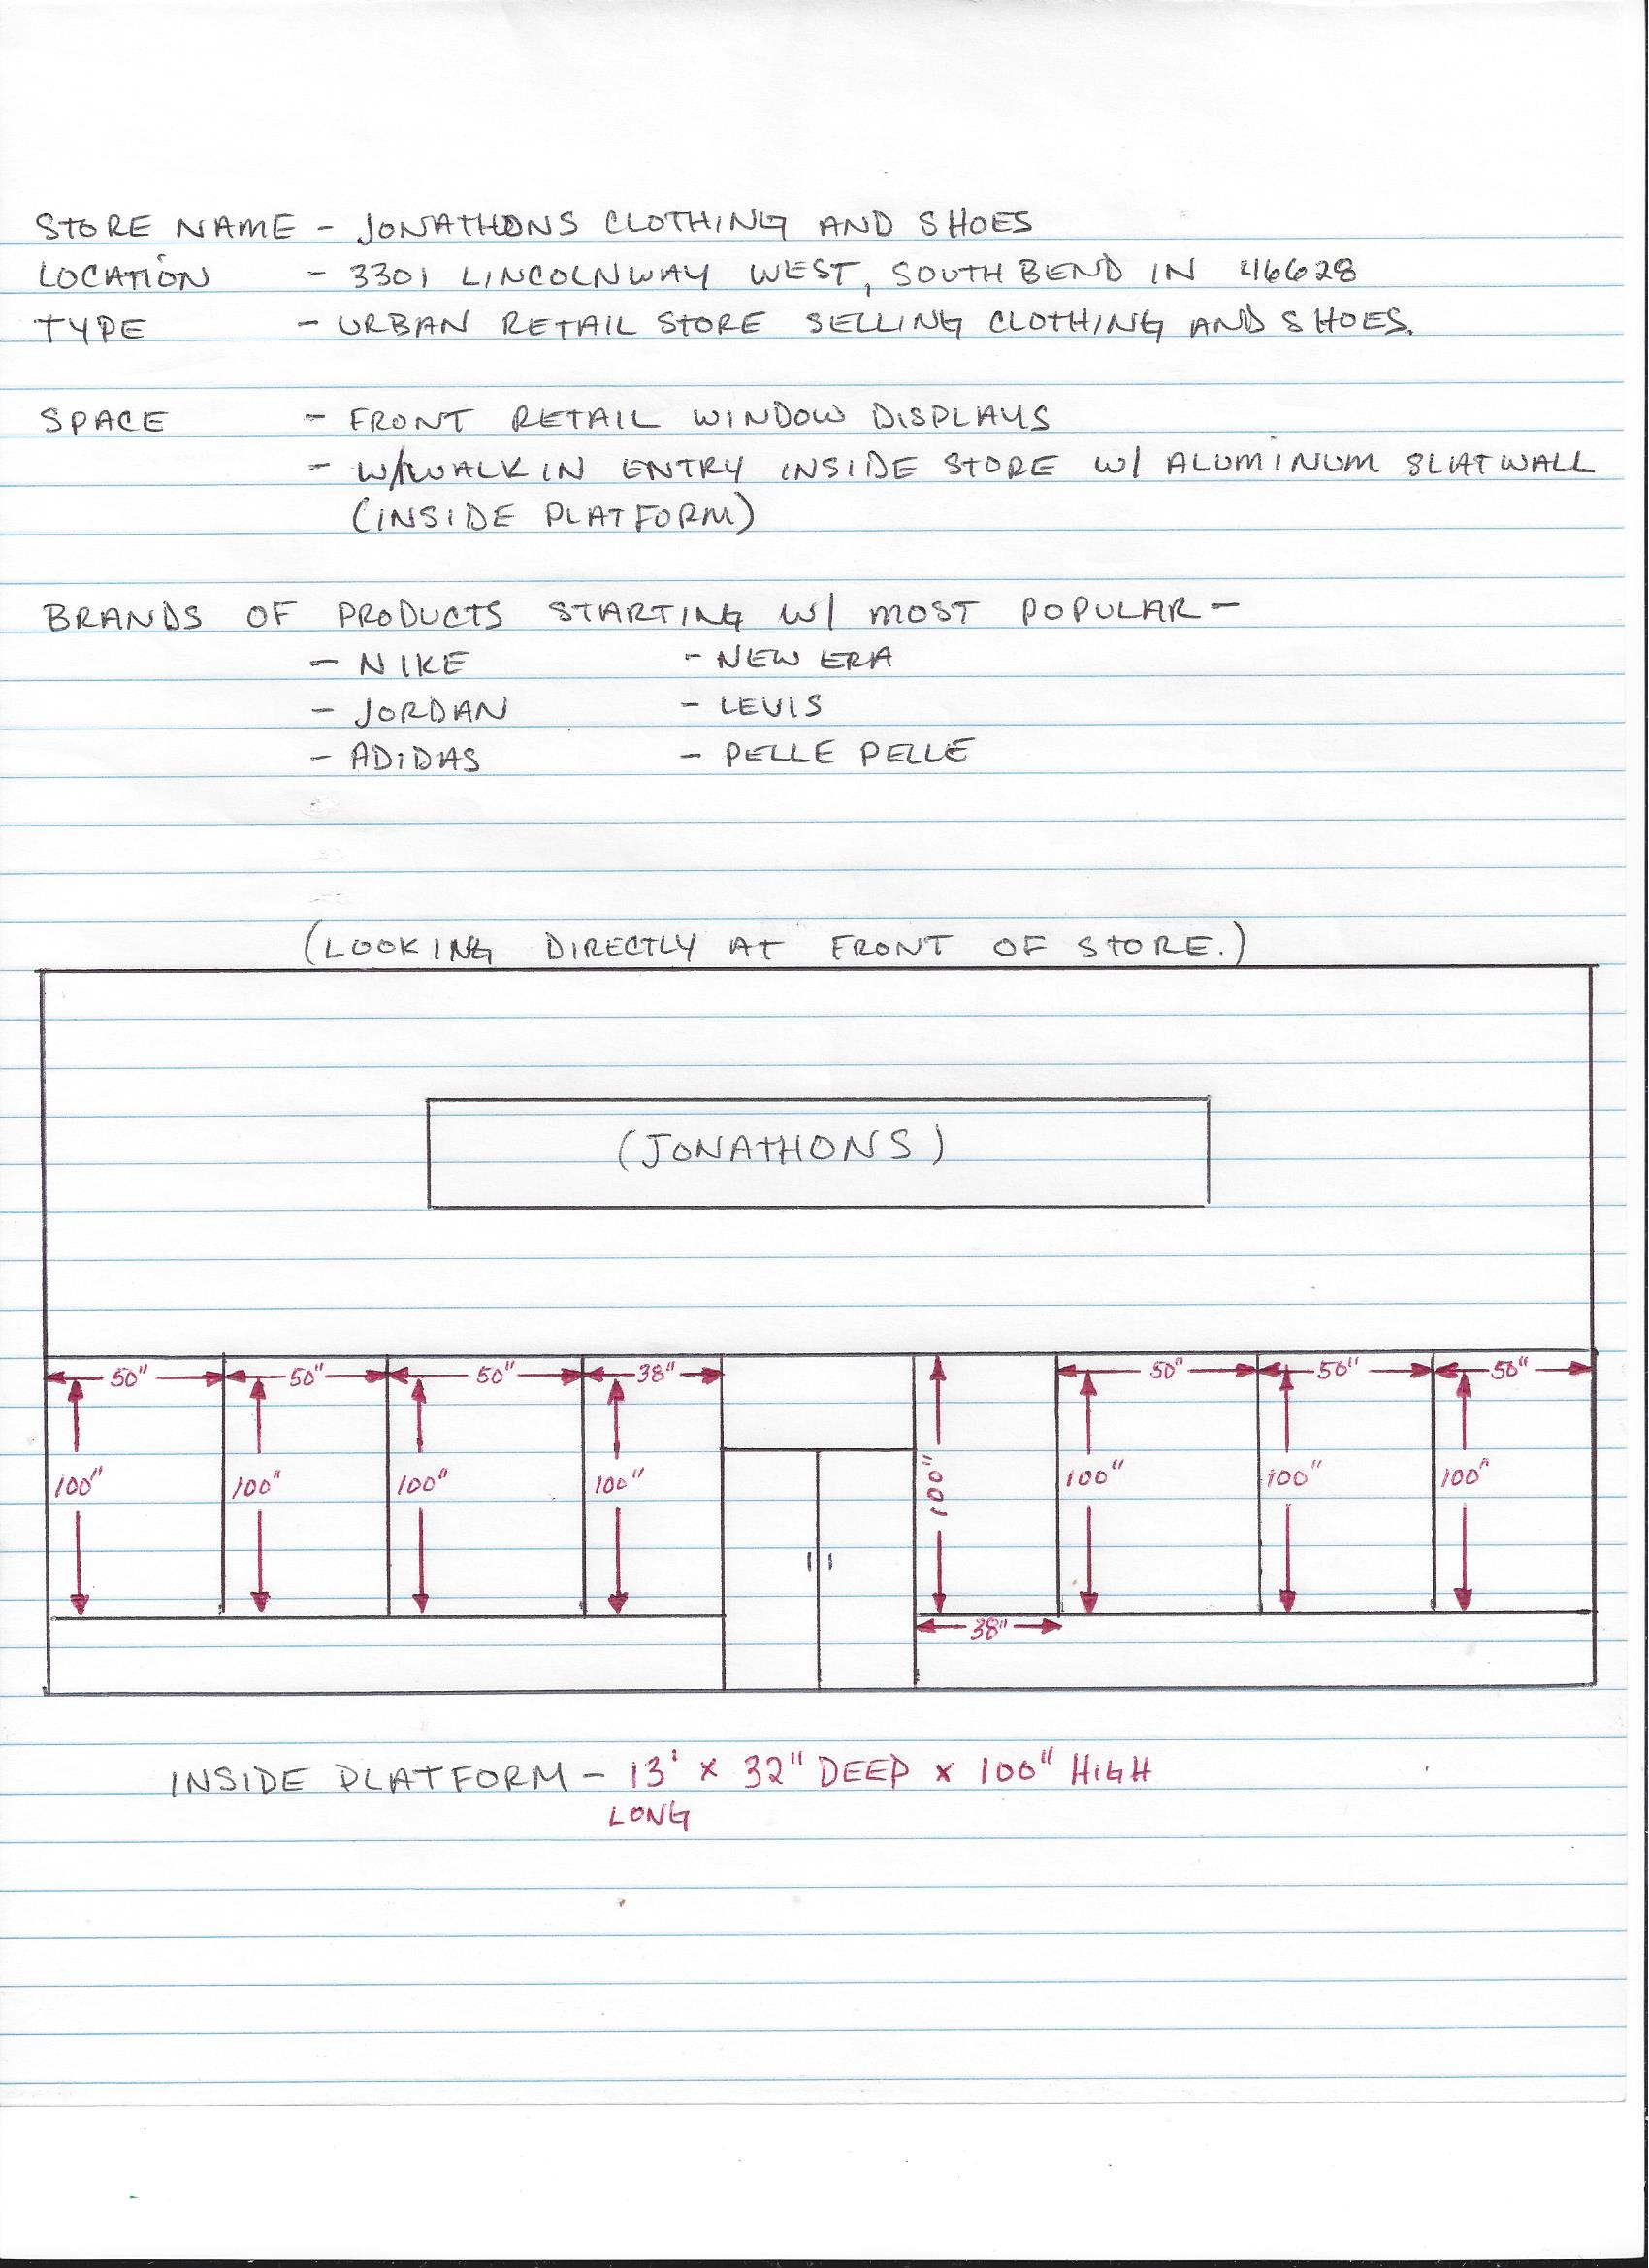 STORE NAME - JONATHONS CLOTHING AND SHOES
LOCATION - 3301 LINCOLNWAY WEST, SOUTH BEND IN 46628
TYPE - URBAN RETAIL STORE SELLING CLOTHING AND SHOES.
SPACE - FRONT RETAIL WINDOW DISPLAYS
- W/WALK IN ENTRY INSIDE STORE W/ ALUMINUM SLATWALL
(INSIDE PLATFORM)
BRANDS OF PRODUCTS STARTING W/ MOST POPULAR -
- NIKE - NEW ERA
- JORDAN - LEVIS
- ADIDAS - PELLE PELLE
(LOOKING DIRECTLY AT FRONT OF STORE.)
(JONATHONS)
50" 50" 50" 38" 50" 50" 50"
100" 100" 100" 100" 100" 100" 100" 100"
38"
INSIDE PLATFORM - 13' x 32" DEEP x 100" HIGH
LONG